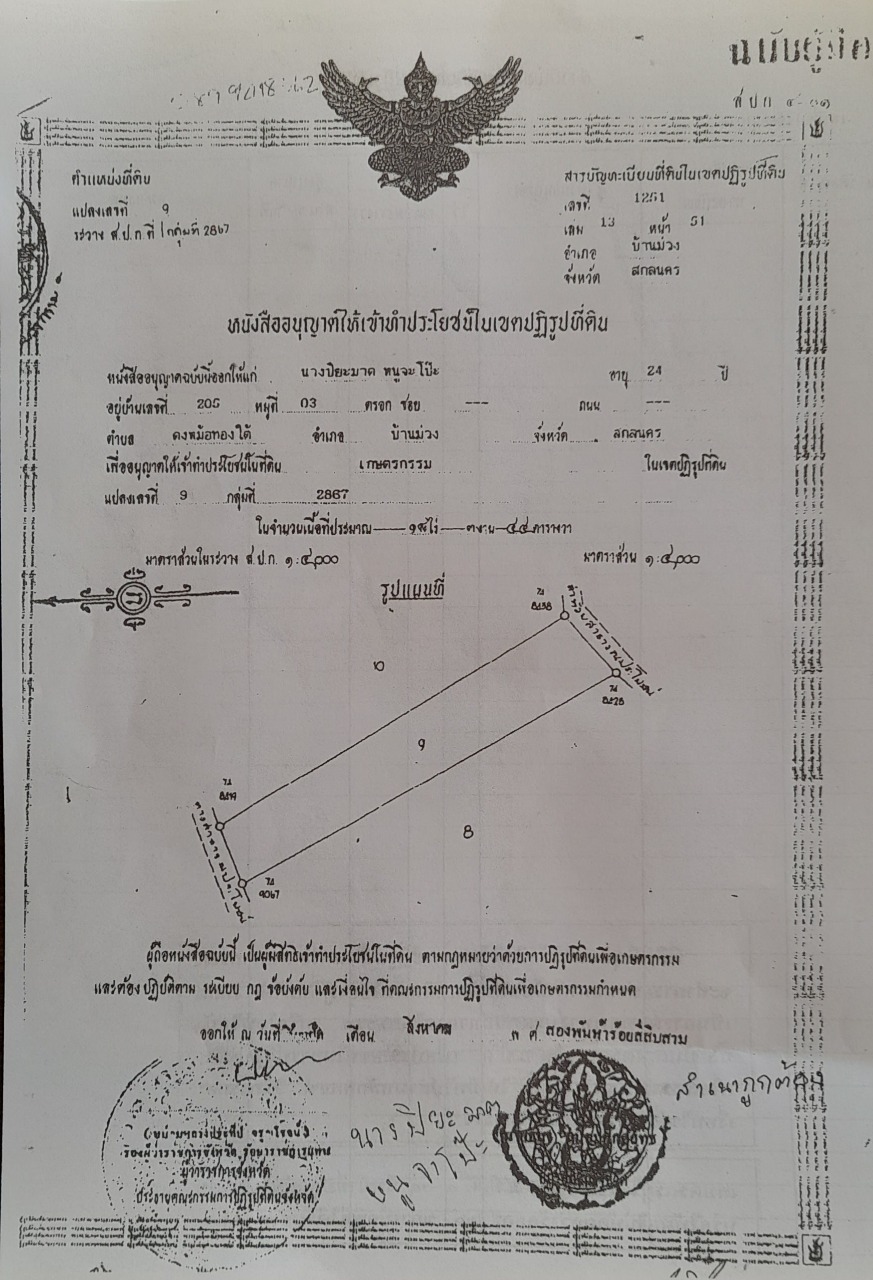 ฉบับผู้ถือ
ส ป ก ๔-๐๑
ตำแหน่งที่ดิน
แปลงเลขที่ 9
ระวาง ส.ป.ก.ที่ กลุ่มที่ 2867
สารบัญทะเบียนที่ดินในเขตปฏิรูปที่ดิน
เลขที่ 1251
เล่ม 13 หน้า 51
อำเภอ บ้านม่วง
จังหวัด สกลนคร
หนังสืออนุญาตให้เข้าทำประโยชน์ในเขตปฏิรูปที่ดิน
หนังสืออนุญาตฉบับนี้ออกให้แก่ นางปิยะมาด หนูจะโป๊ะ อายุ 24 ปี
อยู่บ้านเลขที่ 205 หมู่ที่ 03 ตรอก ซอย --- ถนน ---
ตำบล ดงหม้อทองใต้ อำเภอ บ้านม่วง จังหวัด สกลนคร
เพื่ออนุญาตให้เข้าทำประโยชน์ในที่ดิน เกษตรกรรม ในเขตปฏิรูปที่ดิน
แปลงเลขที่ 9 กลุ่มที่ 2867
ในจำนวนเนื้อที่ประมาณ ไร่ ๓ งาน ๔๔ ตารางวา
มาตราส่วนในระวาง ส.ป.ก. ๑:๔,๐๐๐ มาตราส่วน ๑:๔,๐๐๐
น
รูปแผนที่
ทางสาธารณประโยชน์
10
9
8
9067
ผู้ถือหนังสือฉบับนี้ เป็นผู้มีสิทธิเข้าทำประโยชน์ในที่ดิน ตามกฎหมายว่าด้วยการปฏิรูปที่ดินเพื่อเกษตรกรรม
และต้องปฏิบัติตาม ระเบียบ กฎ ข้อบังคับ และเงื่อนไข ที่คณะกรรมการปฏิรูปที่ดินเพื่อเกษตรกรรมกำหนด
ออกให้ ณ วันที่ เดือน สิงหาคม พ ศ สองพันห้าร้อยสี่สิบสาม
รองผู้ว่าราชการจังหวัด รักษาราชการแทน
ผู้ว่าราชการจังหวัด
ประธานคณะกรรมการปฏิรูปที่ดินจังหวัด
สำเนาถูกต้อง
นางปิยะมาด
หนูจะโป๊ะ